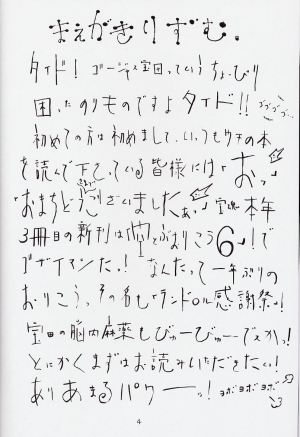 まえがきりずむ。
タイド! ゴージャス宝田っていうちょっぴり
困ったのりものですよタイド!! ゴゴゴゴ
初めての方は初めまして、いっつもウチの本
を読んで下さっている皆様には「おっ
おまちどうございましたぁっ」宝魂 本年
3冊目の新刊は「空ぶおりこう6」!で
ゴザイマシたっ! なんたって一年ぶりの
おりこうっ、その名もランドセル感謝祭っ!
宝田の脳内麻薬しびゅーびゅーでスかっ!
とにかくまずはお読みいただきたい!
ありあまるパワーーっ! ヨボヨボヨボ
4